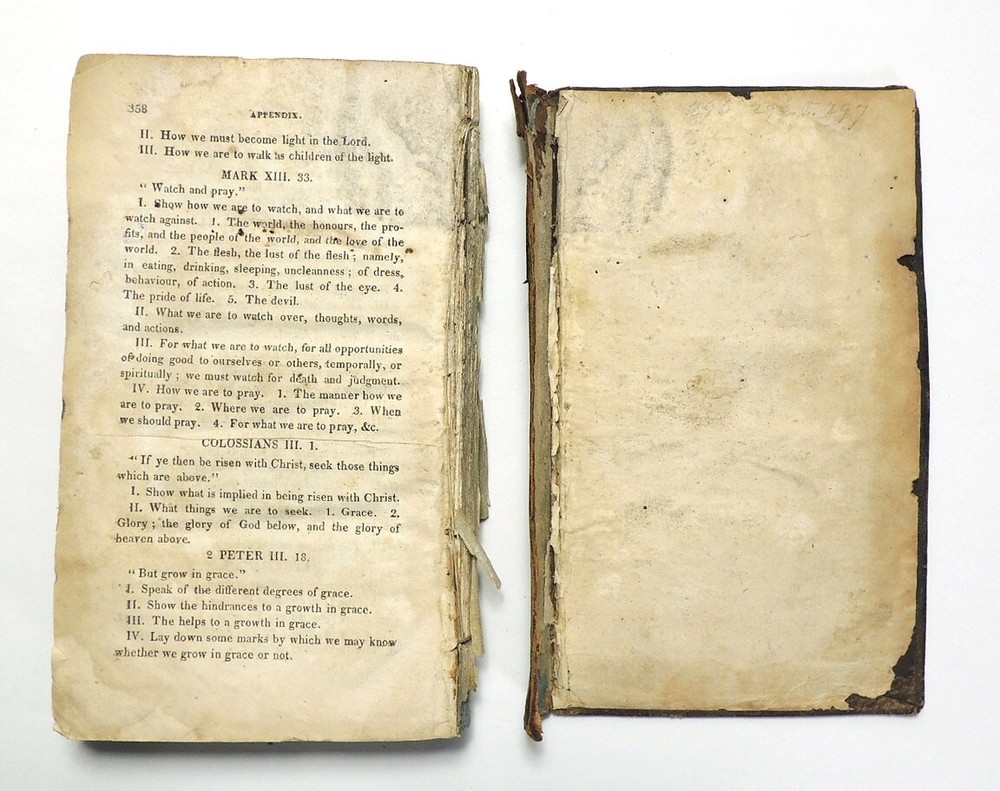 358
APPENDIX.
II. How we must become light in the Lord.
III. How we are to walk as children of the light.
MARK XIII. 33.
" Watch and pray."
I. Show how we are to watch, and what we are to
watch against. 1. The world, the honours, the pro-
fits, and the people of the world, and the love of the
world. 2. The flesh, the lust of the flesh ; namely,
in eating, drinking, sleeping, uncleanness ; of dress,
behaviour, of action. 3. The lust of the eye. 4.
The pride of life. 5. The devil.
II. What we are to watch over, thoughts, words,
and actions.
III. For what we are to watch, for all opportunities
of doing good to ourselves or others, temporally, or
spiritually ; we must watch for death and judgment.
IV. How we are to pray. 1. The manner how we
are to pray. 2. Where we are to pray. 3. When
we should pray. 4. For what we are to pray, &c.
COLOSSIANS III. 1.
" If ye then be risen with Christ, seek those things
which are above."
I. Show what is implied in being risen with Christ.
II. What things we are to seek. 1. Grace. 2.
Glory ; the glory of God below, and the glory of
heaven above.
2 PETER III. 18.
" But grow in grace."
I. Speak of the different degrees of grace.
II. Show the hindrances to a growth in grace.
III. The helps to a growth in grace.
IV. Lay down some marks by which we may know
whether we grow in grace or not.
297